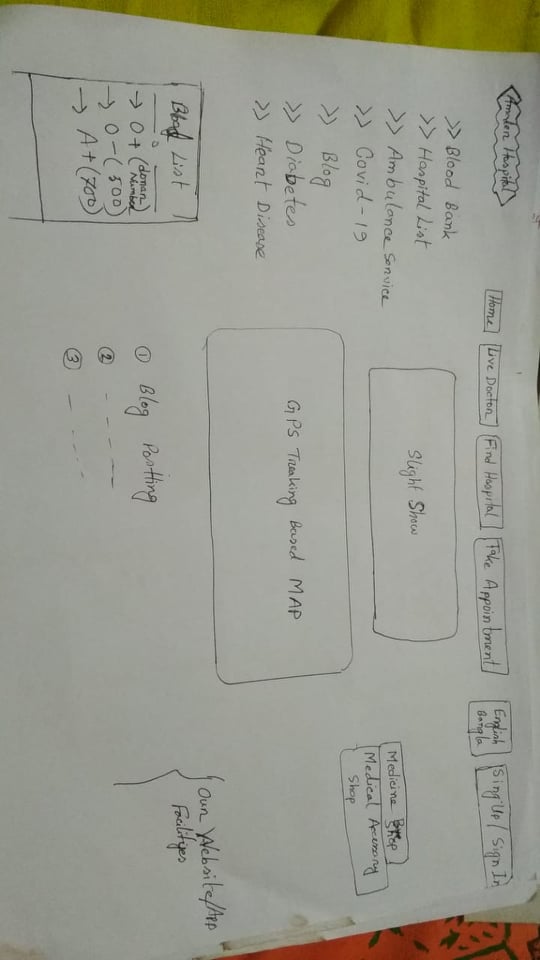 Amder Hospital
Home
Live Doctor
Find Hospital
Take Appointment
English
Bangla
Sing Up / Sign In
>> Blood Bank
>> Hospital List
>> Ambulance Service
>> Covid-19
>> Blog
>> Diabetes
>> Heart Disease
Slight Show
Medicine Shop
Medical Accessory
Shop
GPS Treaking Based MAP
Our Website/App
Facilityes
Blood List
→ O+ (donar
Number)
→ O- (500)
→ A+ (700)
① Blog Postting
②
③